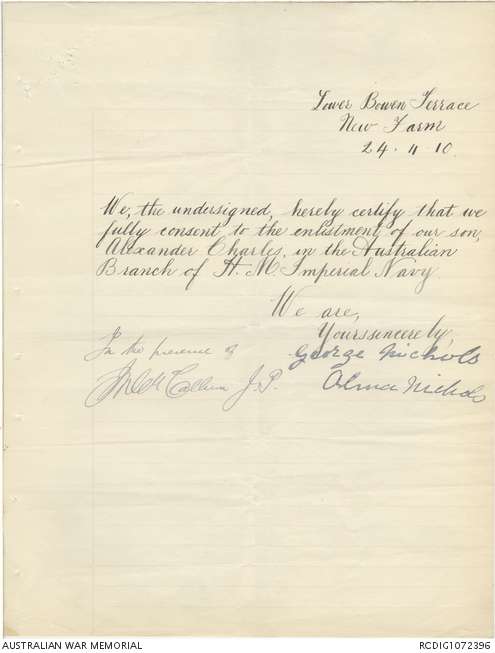 Lower Bowen Terrace
New Farm
24. 11 10.
We, the undersigned, hereby certify that we
fully consent to the enlistment, of our son,
Alexander Charles, in the Australian
Branch of H. M. Imperial Navy.
We are,
Yours sincerely,
In the presence of George Nichols
J.P. Alma Nichols
AUSTRALIAN WAR MEMORIAL RCDIG1072396